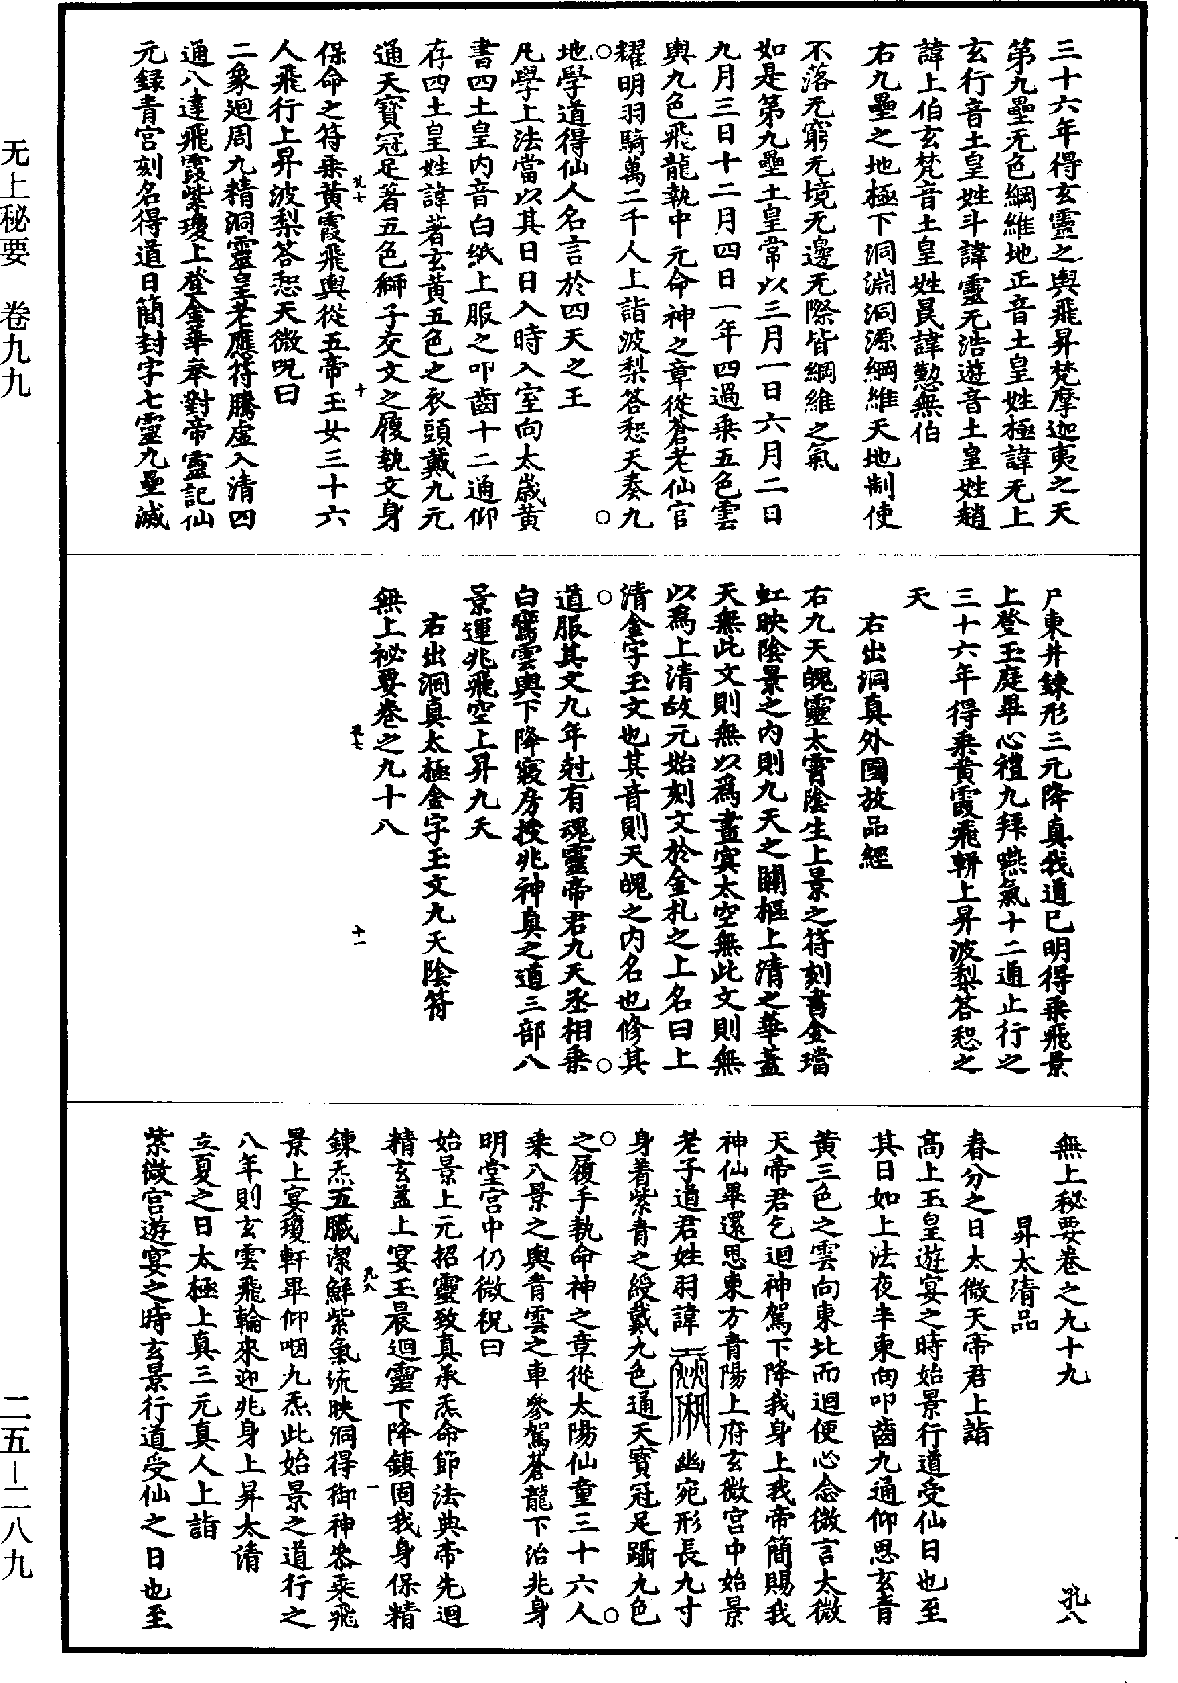 无上秘要　卷九九
二五－二八九
三十六年得玄靈之輿飛昇梵摩迦夷之天
第九壘无色綱維地正音土皇姓極諱无上
玄行音土皇姓斗諱靈元浩遊音土皇姓趙
諱上伯玄梵音土皇姓㫒諱勲無伯
右九壘之地極下洞淵洞源綱維天地制使
不落无窮无境无邊无際皆綱維之氣
如是第九壘土皇常以三月一日六月二日
九月三日十二月四日一年四過乘五色雲
輿九色飛龍執中元命神之章從蒼老仙官
耀明羽騎萬二千人上詣波梨答惒天奏九
地學道得仙人名言於四天之王
凡學上法當以其日日入時入室向太歲黃
書四土皇內音白紙上服之叩齒十二通仰
存四土皇姓諱著玄黃五色之衣頭戴九元
通天寶冠足著五色獅子交文之履執文身
保命之符乘黃霞飛輿從五帝玉女三十六
人飛行上昇波梨答惒天微呪曰
二象迴周九精洞靈皇老應符騰虛入清四
通八達飛霞紫瓊上登金華奉對帝靈記仙
元録青宮刻名得道日簡封字七靈九壘滅
尸東井鍊形三元降真我道已明得乘飛景
上登玉庭畢心禮九拜嚥氣十二通止行之
三十六年得乘黃霞飛輧上昇波梨答惒之
天
右出洞真外國放品經
右九天魄靈太霄陰生上景之符刻書金璫
虹映陰景之內則九天之關樞上清之華蓋
天無此文則無以爲晝冥太空無此文則無
以爲上清故元始刻文於金札之上名曰上
清金字玉文也其音則天魄之內名也修其
道服其文九年尅有魂靈帝君九天丞相乘
白鸞雲輿下降寢房授兆神真之道三部八
景運兆飛空上昇九天
右出洞真太極金字玉文九天陰符
無上祕要卷之九十八
無上秘要卷之九十九
孔八
昇太清品
春分之日太微天帝君上詣
高上玉皇遊宴之時始景行道受仙日也至
其日如上法夜半東向叩齒九通仰思玄青
黃三色之雲向東北而迴便心念微言太微
天帝君乞迴神駕下降我身上我帝簡賜我
神仙畢還思東方青陽上府玄微宮中始景
老子道君姓羽諱幽宛形長九寸
身着紫青之綬戴九色通天寶冠足躡九色
之履手執命神之章從太陽仙童三十六人
乘八景之輿青雲之車參駕蒼龍下治兆身
明堂宮中仍微祝曰
始景上元招靈致真承炁命節法典帝先迴
精玄蓋上宴玉晨迴靈下降鎮固我身保精
鍊炁五臟潔鮮紫氣流映洞得御神參乘飛
景上宴瓊軒畢仰咽九炁此始景之道行之
八年則玄雲飛輪來迎兆身上昇太清
立夏之日太極上真三元真人上詣
紫微宮遊宴之時玄景行道受仙之日也至